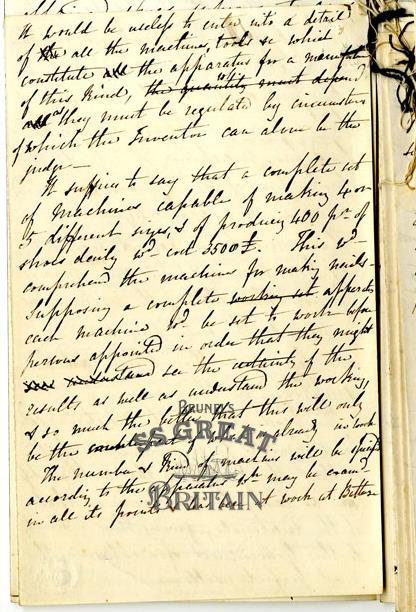 It would be useless to enter into a detail
of the all the machines, tools &c which
constitute all the apparatus for a manufac
of this kind, the quantity must depend
all they must be regulated by circumstan
of which the Inventor can alone be the
judge—
It suffices to say that a complete set
of Machines capable of making 4 or
5 different sizes & of producing 400 pr of
shoes daily wd cost 3500£. This wd
comprehend the machines for making nails—
Supposing a complete working set apparatus
each machine wd be set to work before
persons appointed in order that they might
understand see the certainty of the
results as well as understand the working,
& so much the better that this will only
be the already in work
The number & kind of machines will be
according to the Apparatus wh may be exam
in all its points & at work at Battersea
BRUNEL'S
SS GREAT
BRITAIN